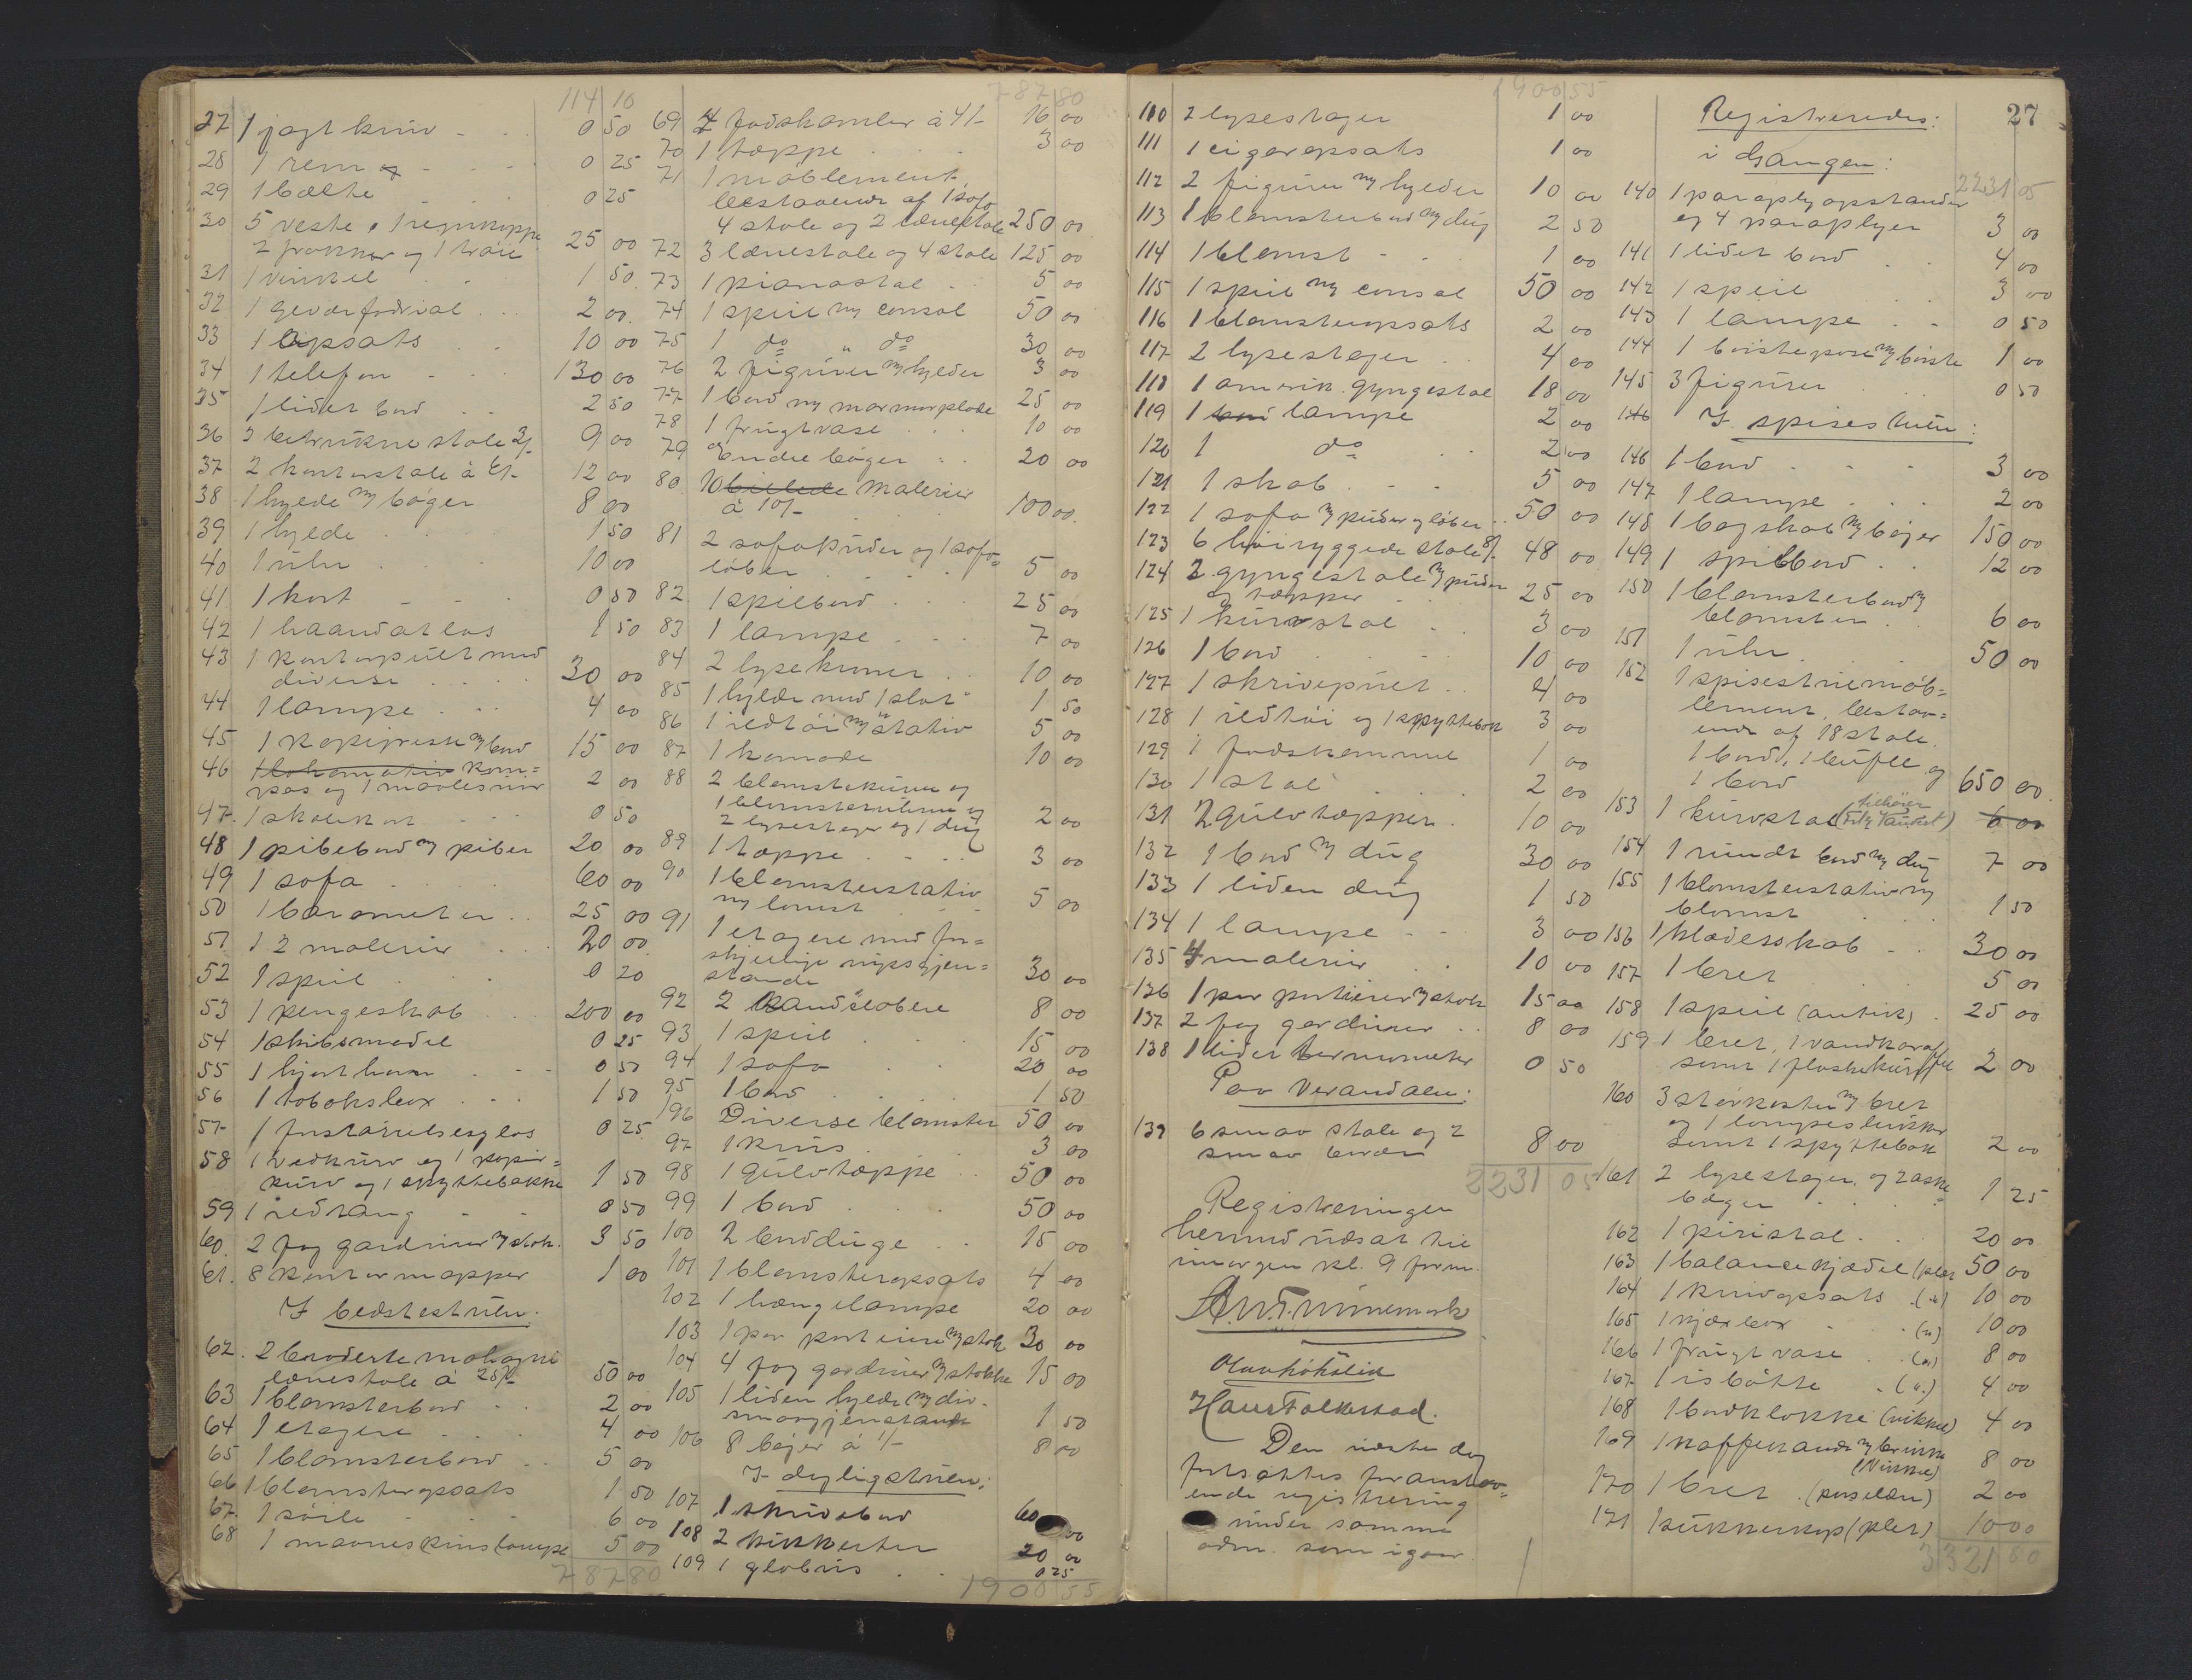 114 10
27 1 jagtkniv - . . 0 50
28 1 rem - - - 0 25
29 1 bælte 0 25
30 5 veste, 1 regnkappe
2 frakker og 1 trøie 25 00
31 1 vinkel . . 1 50
32 1 geværfodral . . . 2 00
33 1 Opsats . . 10 00
34 1 telefon - - 130 00
35 1 lidet bord . . 2 50
36 3 betrukne stole 3/- 9 00
37 2 kontorstole à 6/- 12 00
38 1 hylde m bøger 8 00
39 1 hylde . . . . 1 50
40 1 uhr . . . 10 00
41 1 kort - - - 0 50
42 1 haandatlas 1 50
43 1 kontorpult med
diverse . . . . 30 00
44 1 lampe . - . 4 00
45 1 kopipresse m bord 15 00
46 1 lokomotiv kom=
pas og 1 maalesnor 2 00
47 1 skolekort - - - 0 50
48 1 pibebord m piber 20 00
49 1 sofa . . . . 60 00
50 1 barometer . . 25 00
51 2 malerier . . . 20 00
52 1 speil . . 0 20
53 1 pengeskab . . . 200 00
54 1 skibsmodel 0 25
55 1 hjorthorn . - - 0 50
56 1 tobaksbox . . . 1 50
57 1 forstørrelsesglas 0 25
58 1 vedkurv og 1 papir=
kurv og 1 spyttebakke 1 50
59 1 ildtang - - 0 50
60 2 fag gardiner m stok. 3 50
61 8 kontormapper 1 00
I bedstestuen:
62 2 broderte mahogni
lænestole à 25/- 50 00
63 1 blomsterbord - . 2 00
64 1 etagere . . . 4 00
65 1 blomsterbord . . 5 00
66 1 blomsteropsats 1 50
67 1 søile - . . 6 00
68 1 maaneskinslampe 5 00
787 80
787 80
69 4 fodskamler à 4/- 16 00
70 1 tæppe . . . . 3 00
71 1 møblement,
bestaaende af 1 sofa
4 stole og 2 lænestole 250 00
72 3 lænestole og 4 stole 125 00
73 1 pianostol . . 5 00
74 1 speil m consol 50 00
75 1 do " do 30 00
76 2 figurer m hylder 3 00
77 1 bord m marmorplade 25 00
78 1 frugtvase . . . 10 00
79 Endel bøger . . 20 00
80 10 billede malerier
à 10/- . . . . 100 00
81 2 sofapuder og 1 sofa=
løber . . . . 5 00
82 1 spilbord . . . 25 00
83 1 lampe . . . 7 00
84 2 lysekroner . . 10 00
85 1 hylde med 1 slot 1 50
86 1 ildtøi m stativ 5 00
87 1 komode 10 00
88 2 blomsterkurve og
1 blomsterurne og
2 lysestager og 1 dug 2 00
89 1 tæppe . - . . 3 00
90 1 blomsterstativ
m blomst . - - 5 00
91 1 etagere med for=
skjellige nipsgjen=
stande 30 00
92 2 kandelabere 8 00
93 1 speil . . . 15 00
94 1 sofa . . 20 00
95 1 bord . . . . 1 50
96 Diverse blomster 50 00
97 1 krus . . . . 3 00
98 1 gulvtæppe . . 50 00
99 1 bord . . . 50 00
100 2 bordduge . . 15 00
101 1 blomsteropsats 4 00
102 1 hængelampe 20 00
103 1 par portierer m stok 30 00
104 4 fag gardiner m stokke 15 00
105 1 liden hylde m div.
smaagjenstande 1 50
106 8 bøger à 1/- 8 00
I dagligstuen:
107 1 skrivebord 60 00
108 2 kikkerter 20 00
109 1 globus . . 0 25
1900 55
1900 55
110 2 lysestager 1 00
111 1 cigaropsats 1 00
112 2 figurer m hylder 10 00
113 1 blomsterbord m dug 2 50
114 1 blomst - - . 1 00
115 1 speil m consol 50 00
116 1 blomsteropsats 2 00
117 2 lysestager . . 4 00
118 1 amerik. gyngestol 18 00
119 1 bord lampe 2 00
120 1 do . . 2 00
121 1 skab . - . 5 00
122 1 sofa m puder og løber . . 50 00
123 6 høiryggede stole 8/- 48 00
124 2 gyngestole m puder
og tæpper . . . 25 00
125 1 kurvstol . . 3 00
126 1 bord . . . . 10 00
127 1 skrivepult . . 4 00
128 1 ildtøi og 1 spyttebak 3 00
129 1 fodskammel 1 00
130 1 stol . . . . 2 00
131 2 gulvtæpper . 10 00
132 1 bord m dug 30 00
133 1 liden dug 1 50
134 1 lampe - - 3 00
135 4 malerier . . 10 00
136 1 par portierer m stok 15 00
137 2 fag gardiner . . 8 00
138 1 lidet termometer 0 50
Paa Verandaen:
139 6 smaa stole og 2
smaa borde 8 00
2231 05
Registreringen
hermed udsat til
imorgen kl. 9 form.
Hans Folkestad.
Den næste dag
fortsattes foranstaa=
ende registrering
under samme
adm. som igaar.
27
Registreredes:
i Gangen:
2231 05
140 1 paraplyopstander
og 4 paraplyer 3 00
141 1 lidet bord . . 4 00
142 1 speil 3 00
143 1 lampe . - 0 50
144 1 børstepose m børste 1 00
145 3 figurer . . 0 50
146 I spisestuen:
146 1 bord - - - 3 00
147 1 lampe - . . 2 00
148 1 bogskab m bøger 150 00
149 1 spilbord . . 12 00
150 1 blomsterbord m
blomster . . 6 00
151 1 uhr . . . . 50 00
152 1 spisestuemøb=
lement, bestaa=
ende af 18 stole,
1 bord, 1 buffet og
1 bord 650 00
153 1 kurvstol (tilhører
Frk Taubert) 6 00
154 1 rundt bord m dug 7 00
155 1 blomsterstativ m
blomst . . . 1 50
156 1 klædesskab . . 30 00
157 1 bret . . . . 5 00
158 1 speil (antik) . 25 00
159 1 bret, 1 vandkaraffel
samt 1 flaskekurv 2 00
160 3 støvkoster m bret
og 1 lampeslukker
samt 1 spyttebak 2 00
161 2 lysestager og 2 aske=
bæger . . . . 1 25
162 1 pidestal . . . 20 00
163 1 balancekjedel (plet 50 00
164 1 knivopsats . (") 10 00
165 1 kjæxbox . . (") 10 00
166 1 frugtvase . . (") 8 00
167 1 isbøtte . (".) 4 00
168 1 bordklokke (nikkel) 4 00
169 1 kaffekande m brikke
(Nikkel) 8 00
170 1 bret . (porselæn) 2 00
171 1 sukkerkop (plet) 10 00
3321 80